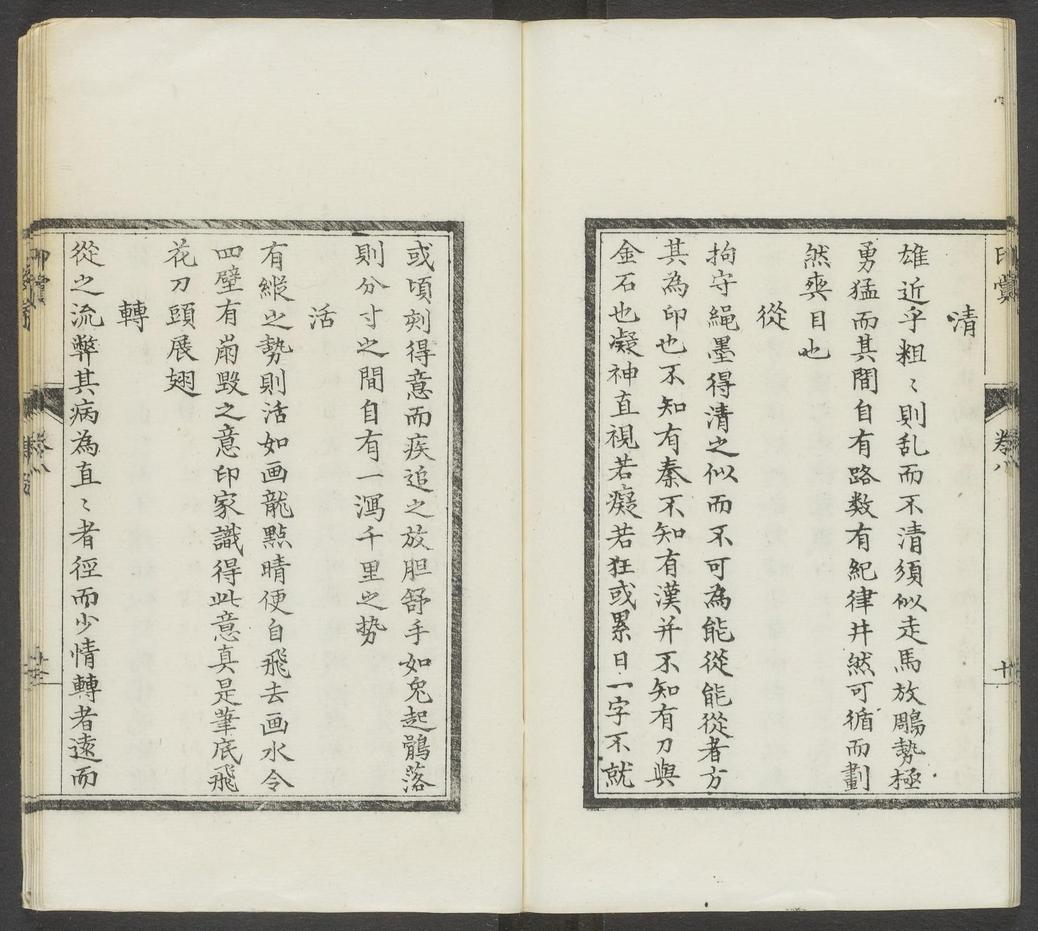 印彙
卷八
清
雄近乎粗〻則乱而不清須似走馬放鵰勢極
勇猛而其間自有路数有紀律井然可循而劃
然爽目也
從
拘守繩墨得清之似而不可為能從能從者方
其為印也不知有秦不知有漢并不知有刀與
金石也凝神直視若癡若狂或累日一字不就
或頃刻得意而疾追之放胆舒手如兔起鶻落
則分寸之間自有一瀉千里之势
活
有縱之勢則活如画龍點睛便自飛去画水令
四壁有崩毀之意印家識得此意真是筆底飛
花刀頭展翅
轉
從之流弊其病為直〻者徑而少情轉者遠而